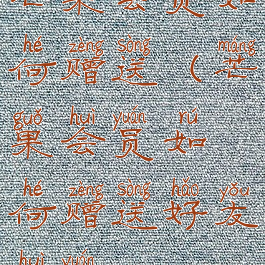 芒果会员如
hé zèng sòng máng
何赠送(芒
guǒ huì yuán rú
果会员如
hé zèng sòng hǎo yǒu
何赠送好友
huì yuán